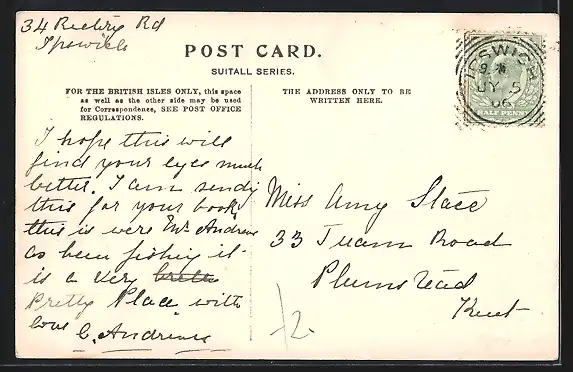 34 Rectory Rd
Ipswich
POST CARD.
SUITALL SERIES.
FOR THE BRITISH ISLES ONLY, this space
as well as the other side may be used
for Correspondence, SEE POST OFFICE
REGULATIONS.
THE ADDRESS ONLY TO BE
WRITTEN HERE.
IPSWICH
JY 5
06
HALF PENNY
I hope this will
find your eyes much
better. I am sendig
this for your book
this is were Mr Andrews
as been fishing it
is a very
Pretty Place with
love C. Andrews
Miss Amy Stace
33 Tuam Road
Plumstead
Kent
/2